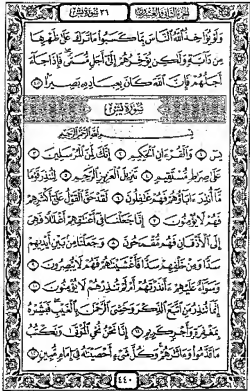 الجزء الثاني والعشرون ٣٦ سورة يس
وَلَوْ يُؤَاخِذُ اللَّهُ النَّاسَ بِمَا كَسَبُوا مَا تَرَكَ عَلَىٰ ظَهْرِهَا
مِن دَابَّةٍ وَلَٰكِن يُؤَخِّرُهُمْ إِلَىٰ أَجَلٍ مُّسَمًّى فَإِذَا جَاءَ
أَجَلُهُمْ فَإِنَّ اللَّهَ كَانَ بِعِبَادِهِ بَصِيرًا ٤٥
سورة يس
بِسْمِ اللَّهِ الرَّحْمَٰنِ الرَّحِيمِ
يس ١ وَالْقُرْءَانِ الْحَكِيمِ ٢ إِنَّكَ لَمِنَ الْمُرْسَلِينَ ٣
عَلَىٰ صِرَاطٍ مُّسْتَقِيمٍ ٤ تَنزِيلَ الْعَزِيزِ الرَّحِيمِ ٥ لِتُنذِرَ قَوْمًا
مَّا أُنذِرَ ءَابَاؤُهُمْ فَهُمْ غَافِلُونَ ٦ لَقَدْ حَقَّ الْقَوْلُ عَلَىٰ أَكْثَرِهِمْ
فَهُمْ لَا يُؤْمِنُونَ ٧ إِنَّا جَعَلْنَا فِي أَعْنَاقِهِمْ أَغْلَالًا فَهِيَ
إِلَى الْأَذْقَانِ فَهُم مُّقْمَحُونَ ٨ وَجَعَلْنَا مِن بَيْنِ أَيْدِيهِمْ
سَدًّا وَمِنْ خَلْفِهِمْ سَدًّا فَأَغْشَيْنَاهُمْ فَهُمْ لَا يُبْصِرُونَ ٩
وَسَوَاءٌ عَلَيْهِمْ ءَأَنذَرْتَهُمْ أَمْ لَمْ تُنذِرْهُمْ لَا يُؤْمِنُونَ ١٠
إِنَّمَا تُنذِرُ مَنِ اتَّبَعَ الذِّكْرَ وَخَشِيَ الرَّحْمَٰنَ بِالْغَيْبِ فَبَشِّرْهُ
بِمَغْفِرَةٍ وَأَجْرٍ كَرِيمٍ ١١ إِنَّا نَحْنُ نُحْيِي الْمَوْتَىٰ وَنَكْتُبُ
مَا قَدَّمُوا وَءَاثَارَهُمْ وَكُلَّ شَيْءٍ أَحْصَيْنَاهُ فِي إِمَامٍ مُّبِينٍ ١٢
٤٤٠